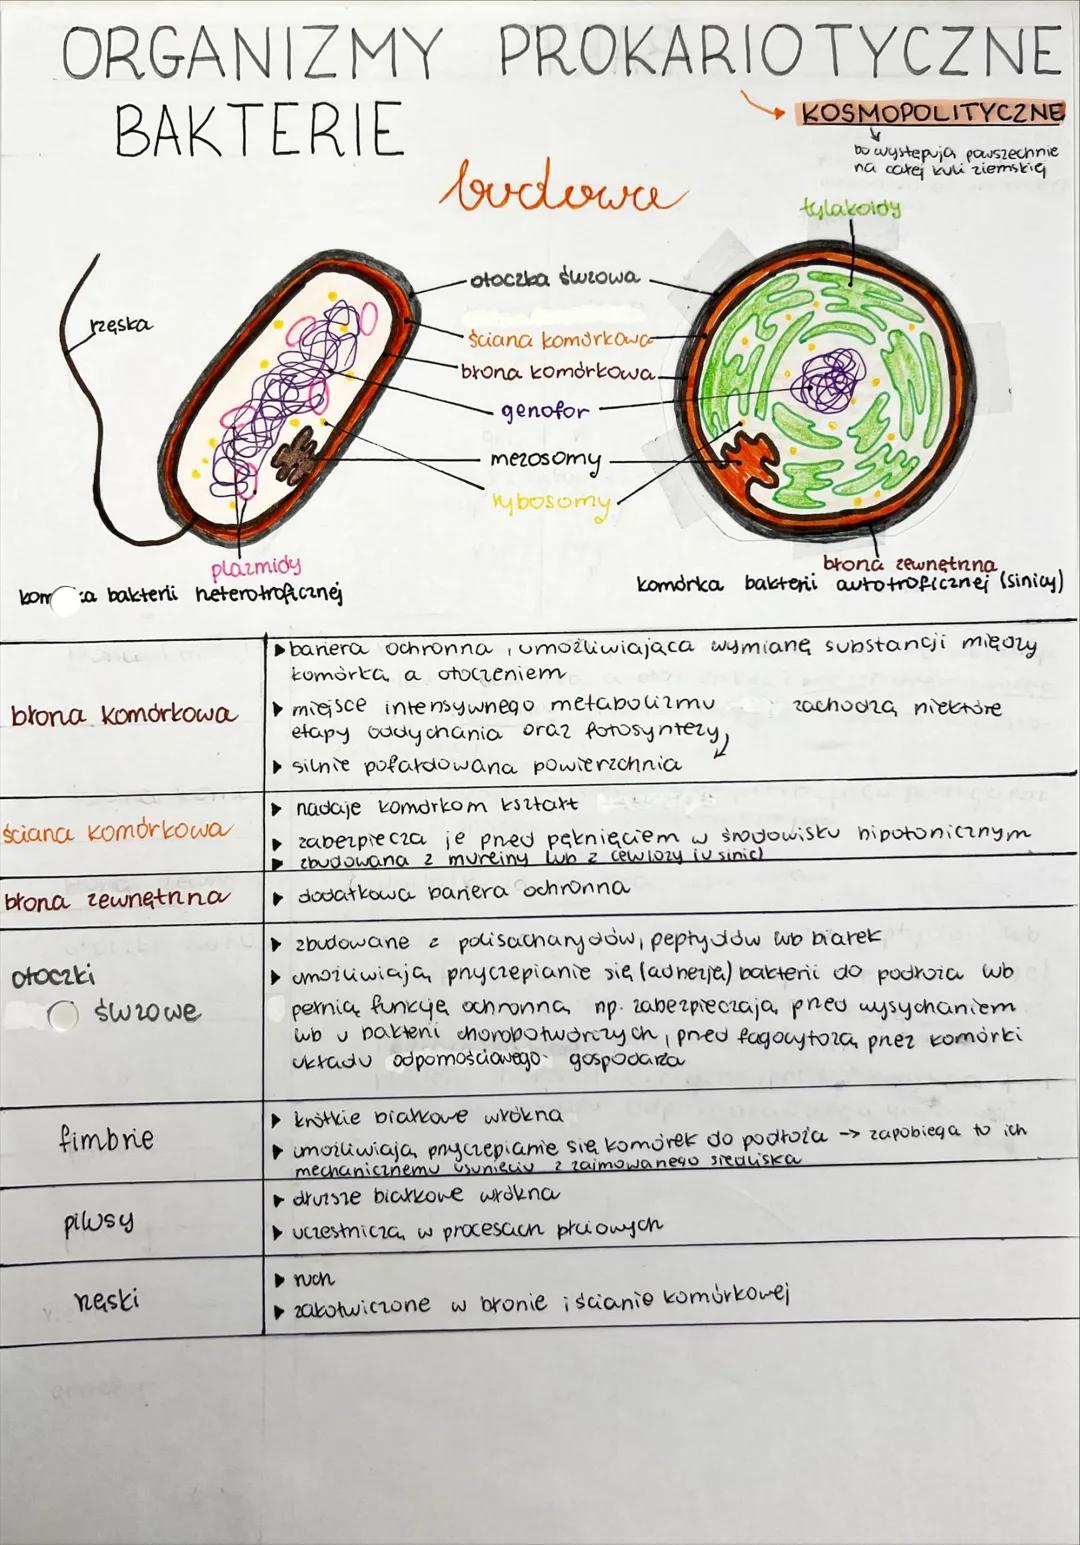 ORGANIZMY PROKARIOTYCZNE
BAKTERIE
KOSMOPOLITYCZNE
bo występują powszechnie
na całej kuli ziemskiej
budowa
tylakoidy
rzęska
otoczka śluzowa
ściana komórkowa
błona komórkowa
genofor
mezosomy
rybosomy
plazmidy
błona zewnętrzna
kom ka bakterii heterotroficznej
komórka bakterii autotroficznej (sinicy)
błona komórkowa
▸ bariera ochronna, umożliwiająca wymianę substancji między
komórką a otoczeniem
▸ miejsce intensywnego metabolizmu zachodzą niektóre
etapy oddychania oraz fotosyntezy
▸ silnie pofałdowana powierzchnia
ściana komórkowa
▸ nadaje komórkom kształt
▸ zabezpiecza je przed pęknięciem w środowisku hipotonicznym
▸ zbudowana z mureiny lub z celulozy (u sinic)
błona zewnętrzna
▸ dodatkowa bariera ochronna
otoczki
śluzowe
▸ zbudowane z polisacharydów, peptydów lub białek
▸ umożliwiają przyczepianie się (adhezję) bakterii do podłoża lub
pełnią funkcję ochronną, np. zabezpieczają przed wysychaniem
lub u bakterii chorobotwórczych, przed fagocytozą przez komórki
układu odpornościowego gospodarza
fimbrie
▸ krótkie białkowe włókna
▸ umożliwiają przyczepianie się komórek do podłoża -> zapobiega to ich
mechanicznemu usunięciu z zajmowanego siedliska
pilusy
▸ dłuższe białkowe włókna
▸ uczestniczą w procesach płciowych
rzęski
▸ ruch
▸ zakotwiczone w błonie i ścianie komórkowej